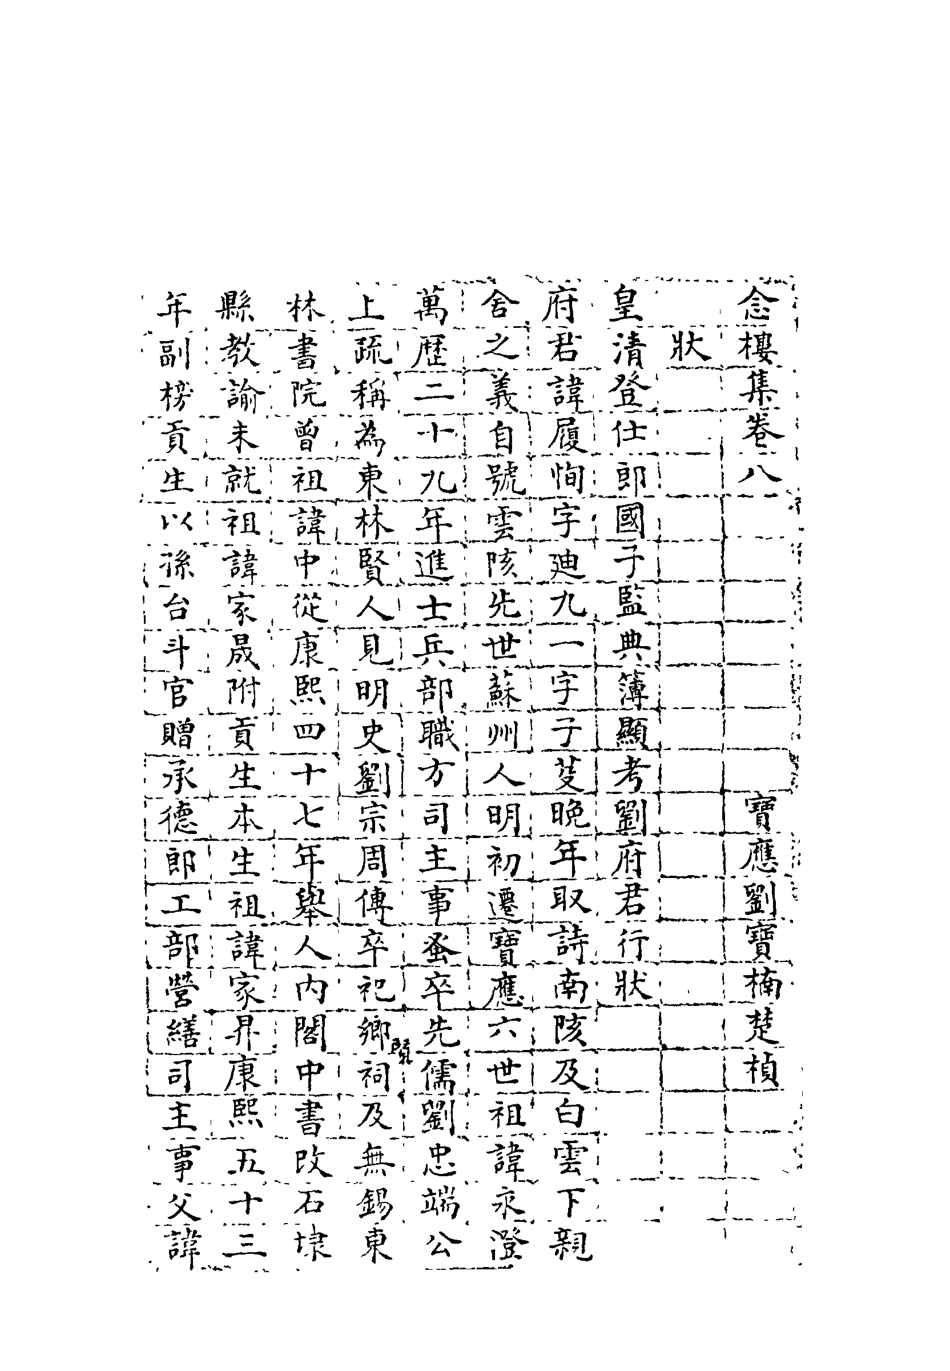 念樓集卷八 寶應劉寶楠楚楨
狀
皇清登仕郎國子監典簿顯考劉府君行狀
府君諱履恂字迪九一字子芟晚年取詩南陔及白雲下親
舍之義自號雲陔先世蘇州人明初遷寶應六世祖諱永澄
萬歷二十九年進士兵部職方司主事蚤卒先儒劉忠端公
上疏稱為東林賢人見明史劉宗周傳卒祀鄉賢祠及無錫東
林書院曾祖諱中從康熙四十七年舉人內閣中書改石埭
縣教諭未就祖諱家晟附貢生本生祖諱家昇康熙五十三
年副榜貢生以孫台斗官贈承德郎工部營繕司主事父諱